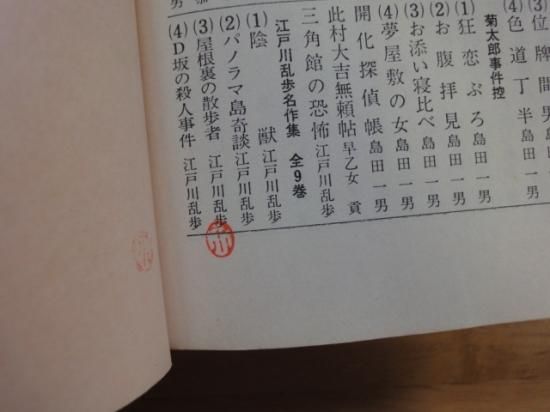 (3)位牌間男
(4)色道丁半 島田一男
菊太郎事件控
(1)狂恋ぶろ 島田一男
(2)お腹拝見 島田一男
(3)お添い寝比べ 島田一男
(4)夢屋敷の女 島田一男
開化探偵帳 島田一男
此村大吉無頼帖 早乙女貢
三角館の恐怖 江戸川乱歩
江戸川乱歩名作集 全9巻
(1)陰獣 江戸川乱歩
(2)パノラマ島奇談 江戸川乱歩
(3)屋根裏の散歩者 江戸川乱歩
(4)D坂の殺人事件 江戸川乱歩